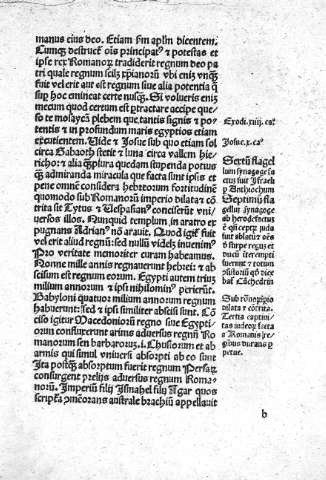 manus eius deo. Etiam fm aplm dicentem.
Cumqꝫ destruet oīs principatꝰ et potestas et
ipse rex Romanoꝝ tradiderit regnum deo pa
tri quale regnum scilꝫ xp̄ianorū vbi enīz vnqꝫ
fuit vel erit aut est regnum siue alia potentia q̄
sup hoc emineat certe nusqꝫ. Si volueris eniꝫ
mecum quod certum est ꝑtractare accipe que/
so te plebem que tantis signis et po
tentis et in profundum maris egiptios etiam
excutientem. Uide et Josue sub quo etiam sol
circa Gabaoth stetit et luna circa vallem hie/
richo: et alia quedam stupenda
admiranda miracula que facta sunt ipsis et
pene omnē considera hebreorum fortitudinē
quomodo sub Romanorū imperio dilata et cō
trita sit Tytus et Vespasianꝰ conciserūt vni/
uersos illos. Nunquid templum in aratro ex
pugnans Adrianꝰ nō arauit. Quod igiť fuit
vel erit aliud regnū: sed nullū videlꝫ inueniēꝰ
Pro veritate moniter curam habeamus.
Nonne mille annis regnauerunt hebrei: et ab
scisum est regnum eorum. Egypti autem trius
milium annorum et ipsi nihilominꝰ perierūt.
Babyloni quatuor milium annorum regnum
habuerunt: sed et ipsi similiter abscisi sunt. Cō
ciso igitur Macedoniorū regno siue Egypti/
orum consurrexerunt arma aduersus regnū Ro
manorum sen barbaroruꝫ. i. Thusorum et ab
armis qui simul vniuersi absorpti ab eo sunt
Ita postqꝫ absorptum fuerit regnum Persarꝫ
consurgent prelijs aduersus regnum Roma/
norū. Imperiū filij Ismahel filij Agar quos
scriptꝰa meorans australe brachiū appellauit
Exodi. xiiij. ca°
Josue. x. ca°
Sextū flagel
lum synagoge sa
cra fuit Israely
Anthiochum
Septimū fla
gellū synagoge
sub herodeneus
Sub romꝫ impio
dilata et cōtrita.
Tertia captiui
tas
a Romanis
b